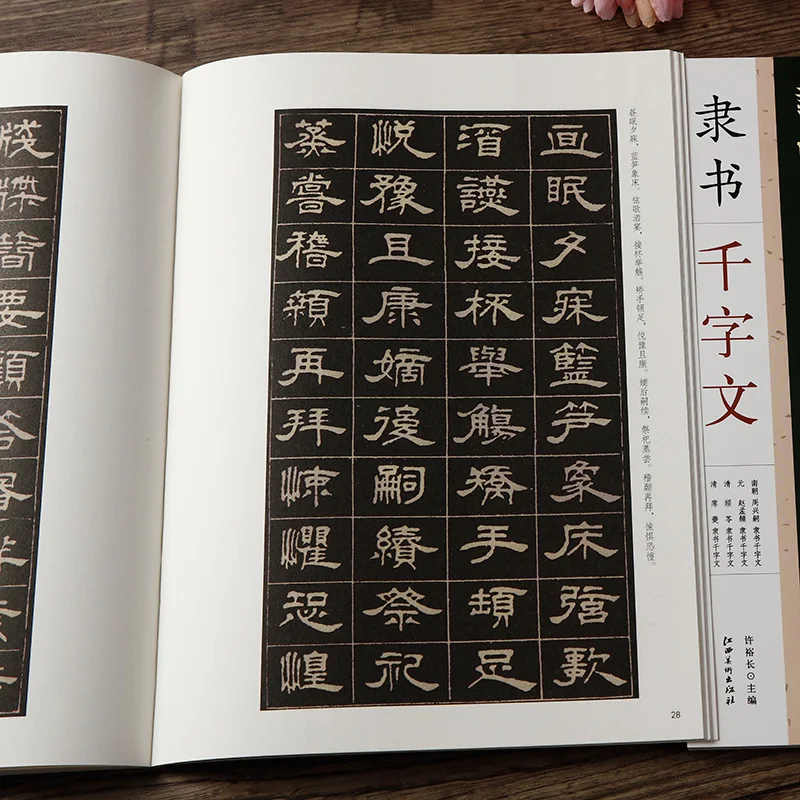 昼眠夕寐，蓝笋象床。弦歌酒宴，接杯举觞。矫手顿足，悦豫且康。嫡后嗣续，祭祀蒸尝。稽颡再拜，悚惧恐惶。
晝眠夕寐籃笋象床弦歌
酒讌接杯舉觴矯手頓足
悅豫且康嫡後嗣續祭祀
蒸嘗稽顙再拜悚懼恐惶
28
牋牒簡要顧答審詳
隶书
千字文
南朝 周兴嗣 隶书千字文
元 赵孟頫 隶书千字文
清 顾苓 隶书千字文
清 席夔 隶书千字文
许裕长⊙主编
江西美術出版社